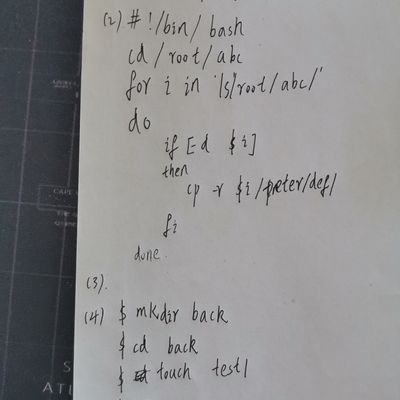 (2) #!/bin/bash
cd /root/abc
for i in `ls /root/abc/`
do
if [-d $i]
then
cp -r $i /peter/def/
fi
done
(3).
(4) $ mkdir back
$ cd back
$ touch test1